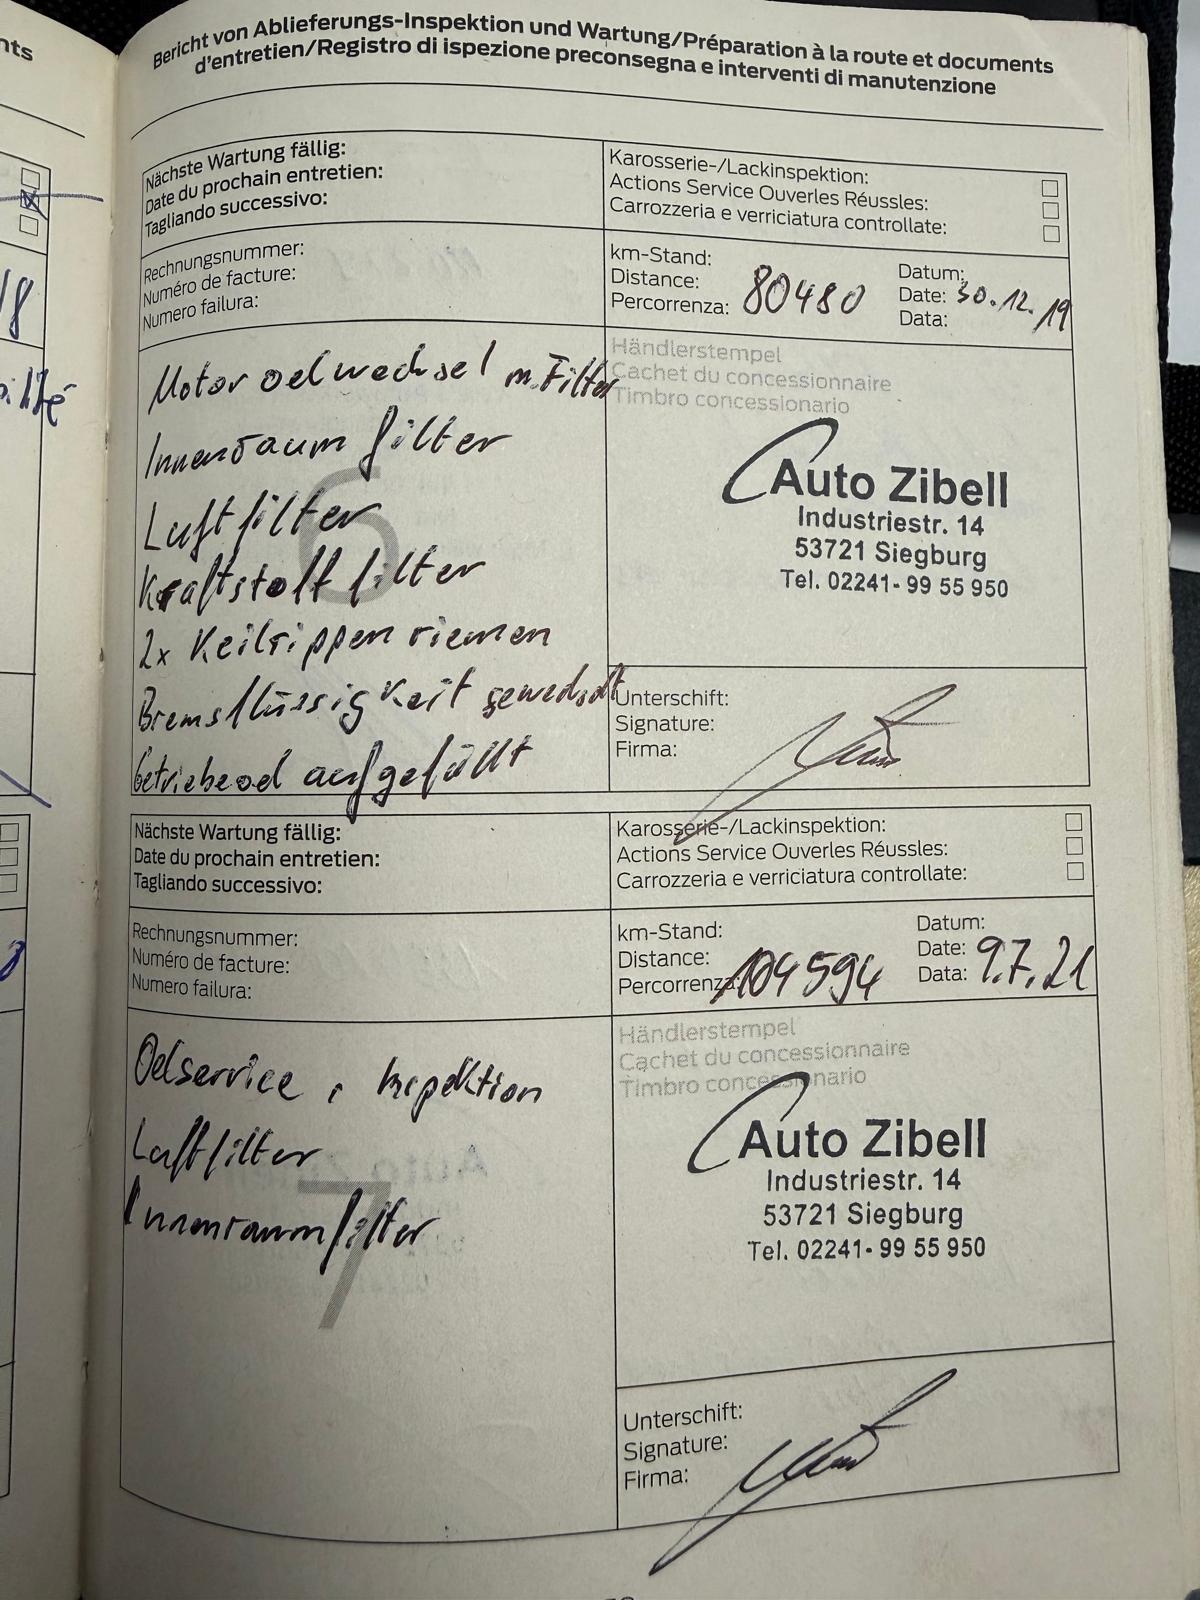 nts
Bericht von Ablieferungs-Inspektion und Wartung/Préparation à la route et documents
d'entretien/Registro di ispezione preconsegna e interventi di manutenzione
Nächste Wartung fällig:
Date du prochain entretien:
Tagliando successivo:
Karosserie-/Lackinspektion:
Actions Service Ouverles Réussles:
Carrozzeria e verriciatura controllate:
Rechnungsnummer:
Numéro de facture:
Numero failura:
km-Stand:
Distance:
Percorrenza: 80480
Datum:
Date: 30.12.19
Data:
Motor oelwechsel m. Filter
Innenraum filter
Luftfilter
Kraftstoff filter
2x Keilrippen riemen
Bremsflüssigkeit gewechselt
betriebeoel aufgefüllt
6
Händlerstempel
Cachet du concessionnaire
Timbro concessionario
Auto Zibell
Industriestr. 14
53721 Siegburg
Tel. 02241- 99 55 950
Unterschift:
Signature:
Firma:
Nächste Wartung fällig:
Date du prochain entretien:
Tagliando successivo:
Karosserie-/Lackinspektion:
Actions Service Ouverles Réussles:
Carrozzeria e verriciatura controllate:
Rechnungsnummer:
Numéro de facture:
Numero failura:
km-Stand:
Distance:
Percorrenza: 104594
Datum:
Date: 9.7.21
Data:
Oelservice, Inspektion
Luftfilter
Innenraumfilter
7
Händlerstempel
Cachet du concessionnaire
Timbro concessionario
Auto Zibell
Industriestr. 14
53721 Siegburg
Tel. 02241- 99 55 950
Unterschift:
Signature:
Firma: